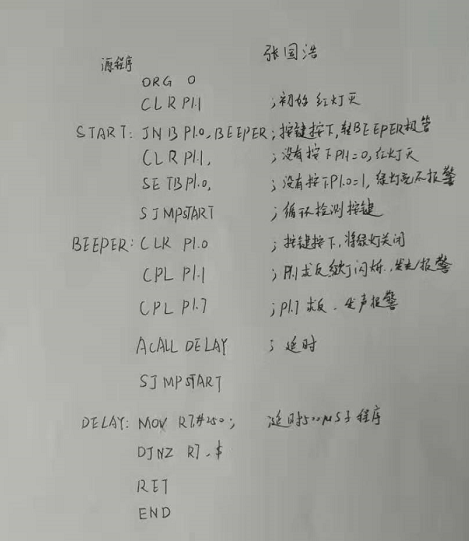 源程序 张国浩
ORG 0
CLR P1.1 ;初始红灯灭
START: JNB P1.0, BEEPER ;按键按下,转BEEPER报警
CLR P1.1, ;没有按下P1.1=0,红灯灭
SETB P1.0, ;没有按下P1.0=1,绿灯亮不报警
SJMP START ;循环检测按键
BEEPER: CLR P1.0 ;按键按下,将绿灯关闭
CPL P1.1 ;P1.1求反红灯闪烁,发光报警
CPL P1.7 ;P1.7求反、发声报警
ACALL DELAY ;延时
SJMP START
DELAY: MOV R7,#250; 延时500μs子程序
DJNZ R7.$
RET
END